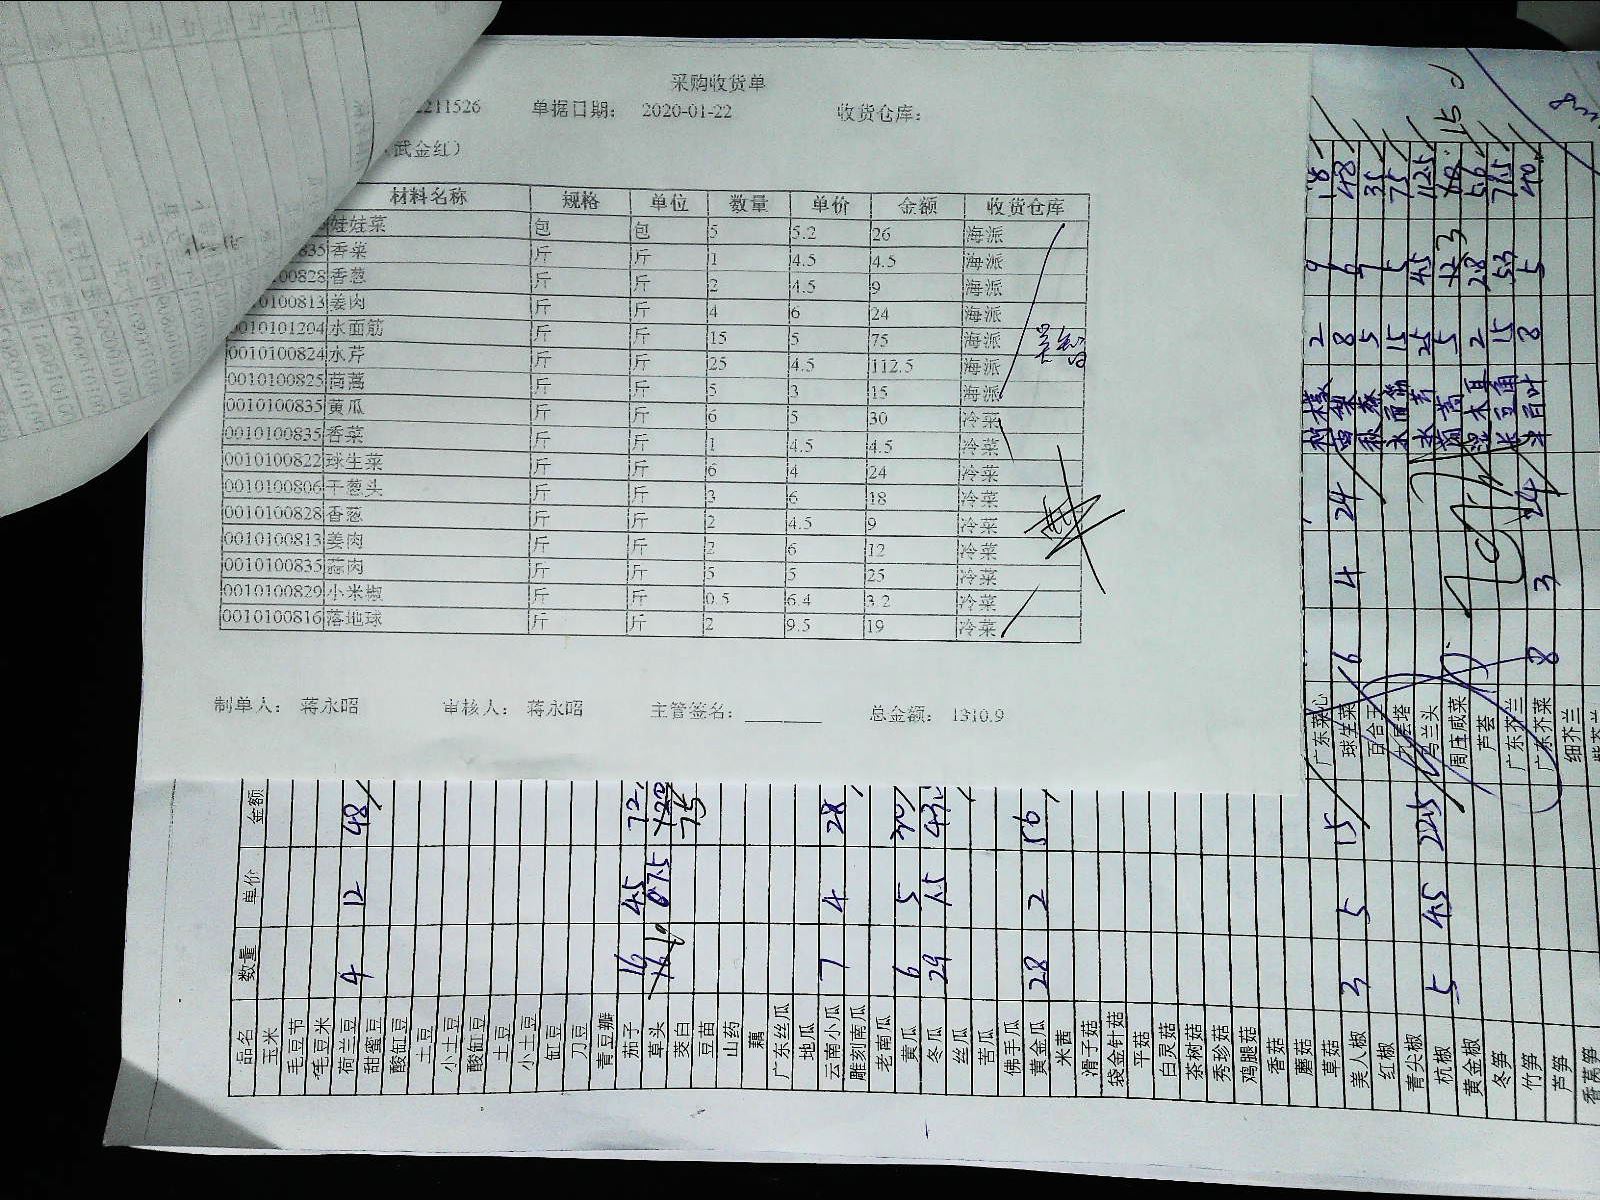 采购收货单
2211526 单据日期： 2020-01-22 收货仓库：
（武金红）
材料名称 规格 单位 数量 单价 金额 收货仓库
娃娃菜 包 包 5 5.2 26 海派
835 香菜 斤 斤 1 4.5 4.5 海派
00828 香葱 斤 斤 2 4.5 9 海派
0100813 姜肉 斤 斤 4 6 24 海派
0010101204 水面筋 斤 斤 15 5 75 海派
0010100824 水芹 斤 斤 25 4.5 112.5 海派
0010100825 茼蒿 斤 斤 5 3 15 海派
0010100835 黄瓜 斤 斤 6 5 30 冷菜
0010100835 香菜 斤 斤 1 4.5 4.5 冷菜
0010100822 球生菜 斤 斤 6 4 24 冷菜
0010100806 干葱头 斤 斤 3 6 18 冷菜
0010100828 香葱 斤 斤 2 4.5 9 冷菜
0010100813 姜肉 斤 斤 2 6 12 冷菜
0010100835 蒜肉 斤 斤 5 5 25 冷菜
0010100829 小米椒 斤 斤 0.5 6.4 3.2 冷菜
0010100816 落地球 斤 斤 2 9.5 19 冷菜
制单人： 蒋永昭 审核人： 蒋永昭 主管签名： 总金额： 1310.9
品名 数量 单价 金额
玉米
毛豆节
毛豆米
荷兰豆 4 12 48
甜蜜豆
酸缸豆
土豆
小土豆
酸缸豆
土豆
小土豆
缸豆
刀豆
青豆瓣
茄子 16 4.5 72
草头
茭白
豆苗
山药
藕
广东丝瓜
地瓜
云南小瓜 7 4 28
雕刻南瓜
老南瓜
黄瓜 6 5 30
冬瓜 29 1.5 43.5
丝瓜
苦瓜
佛手瓜
黄金瓜 28 2 56
米茜
滑子菇
袋金针菇
平菇
白灵菇
茶树菇
秀珍菇
鸡腿菇
香菇
蘑菇
草菇
美人椒 3 5 15
红椒
青尖椒
杭椒 5 4.5 22.5
黄金椒
冬笋
竹笋
芦笋
香莴笋
广东菜心
球生菜 6 4 24
百合王
九层塔
马兰头
周庄咸菜
芦荟
广东芥兰
广东芥菜 8 3 24
细芥兰
2 9 18
8 6 48
5 7 35
水面筋 15 5 75
水芹 25 4.5 112.5
2 28 56
15 5.3 79.5
8 5 40